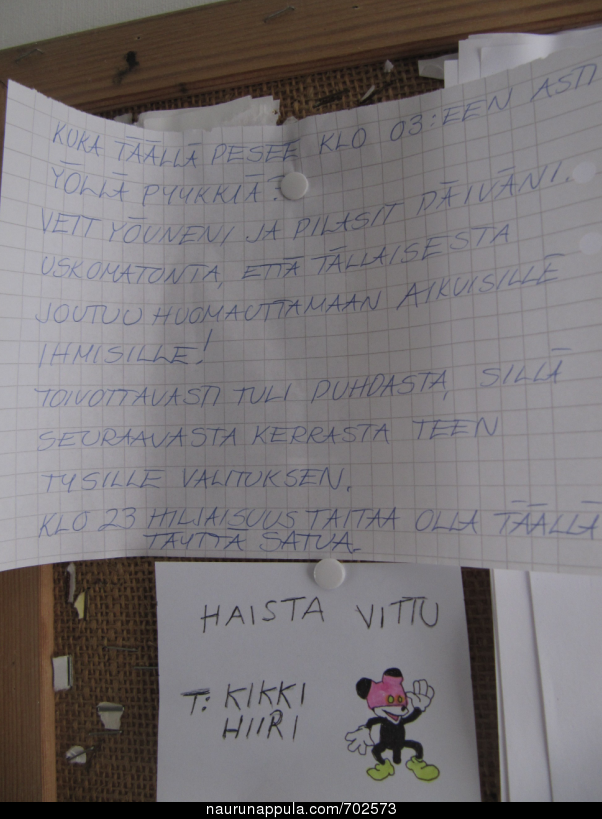 KUKA TÄÄLLÄ PESEE KLO 03:EEN ASTI
YÖLLÄ PYYKKIÄ?
VEIT YÖUNENI JA PILASIT PÄIVÄNI.
USKOMATONTA, ETTÄ TÄLLAISESTA
JOUTUU HUOMAUTTAMAAN AIKUISILLE
IHMISILLE!
TOIVOTTAVASTI TULI PUHDASTA, SILLÄ
SEURAAVASTA KERRASTA TEEN
TYSILLE VALITUKSEN.
KLO 23 HILJAISUUS TAITAA OLLA TÄÄLLÄ
TÄYTTÄ SATUA.
HAISTA VITTU
T: KIKKI
HIIRI
naurunappula.com/702573